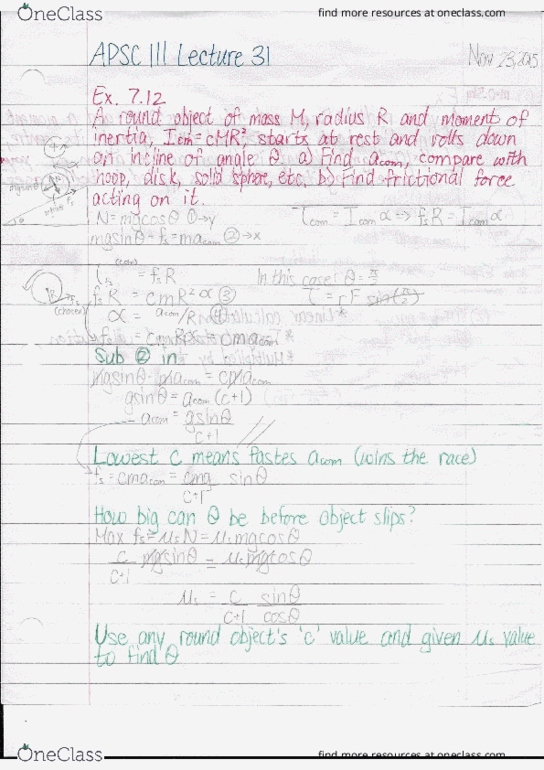 OneClass
find more resources at oneclass.com
APSC 111 Lecture 31
Nov 23, 2015
Ex. 7.12
A round object of mass M, radius R and moment of
inertia, Icom = cMR², starts at rest and rolls down
an incline of angle θ. a) Find acom, compare with
hoop, disk, solid sphere, etc. b) Find frictional force
acting on it.
N = mgcosθ ①→y
τcom = Icom α ⇒ fsR = Icom α
mgsinθ - fs = macom ②→x
= fsR
In this case: θ = π/2
fsR = cmR²α ③
τ = rF sin(π/2)
α = acom/R ④
= cmacom
Sub ② in
mgsinθ - macom = cmacom
gsinθ = acom (c+1)
acom = gsinθ
c+1
Lowest c means fastes acom (wins the race)
fs = cmacom = cmg sinθ
c+1
How big can θ be before object slips?
Max fs = μsN = μsmgcosθ
c mgsinθ = μsmgcosθ
c+1
μs = c sinθ
c+1 cosθ
Use any round object's 'c' value and given μs value
to find θ
OneClass
find more resources at oneclass.com